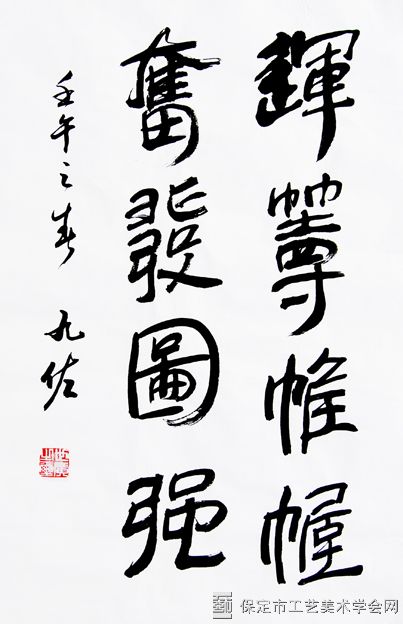 運籌帷幄
奮發圖强
壬午之春 九佐
保定市工艺美术学会网